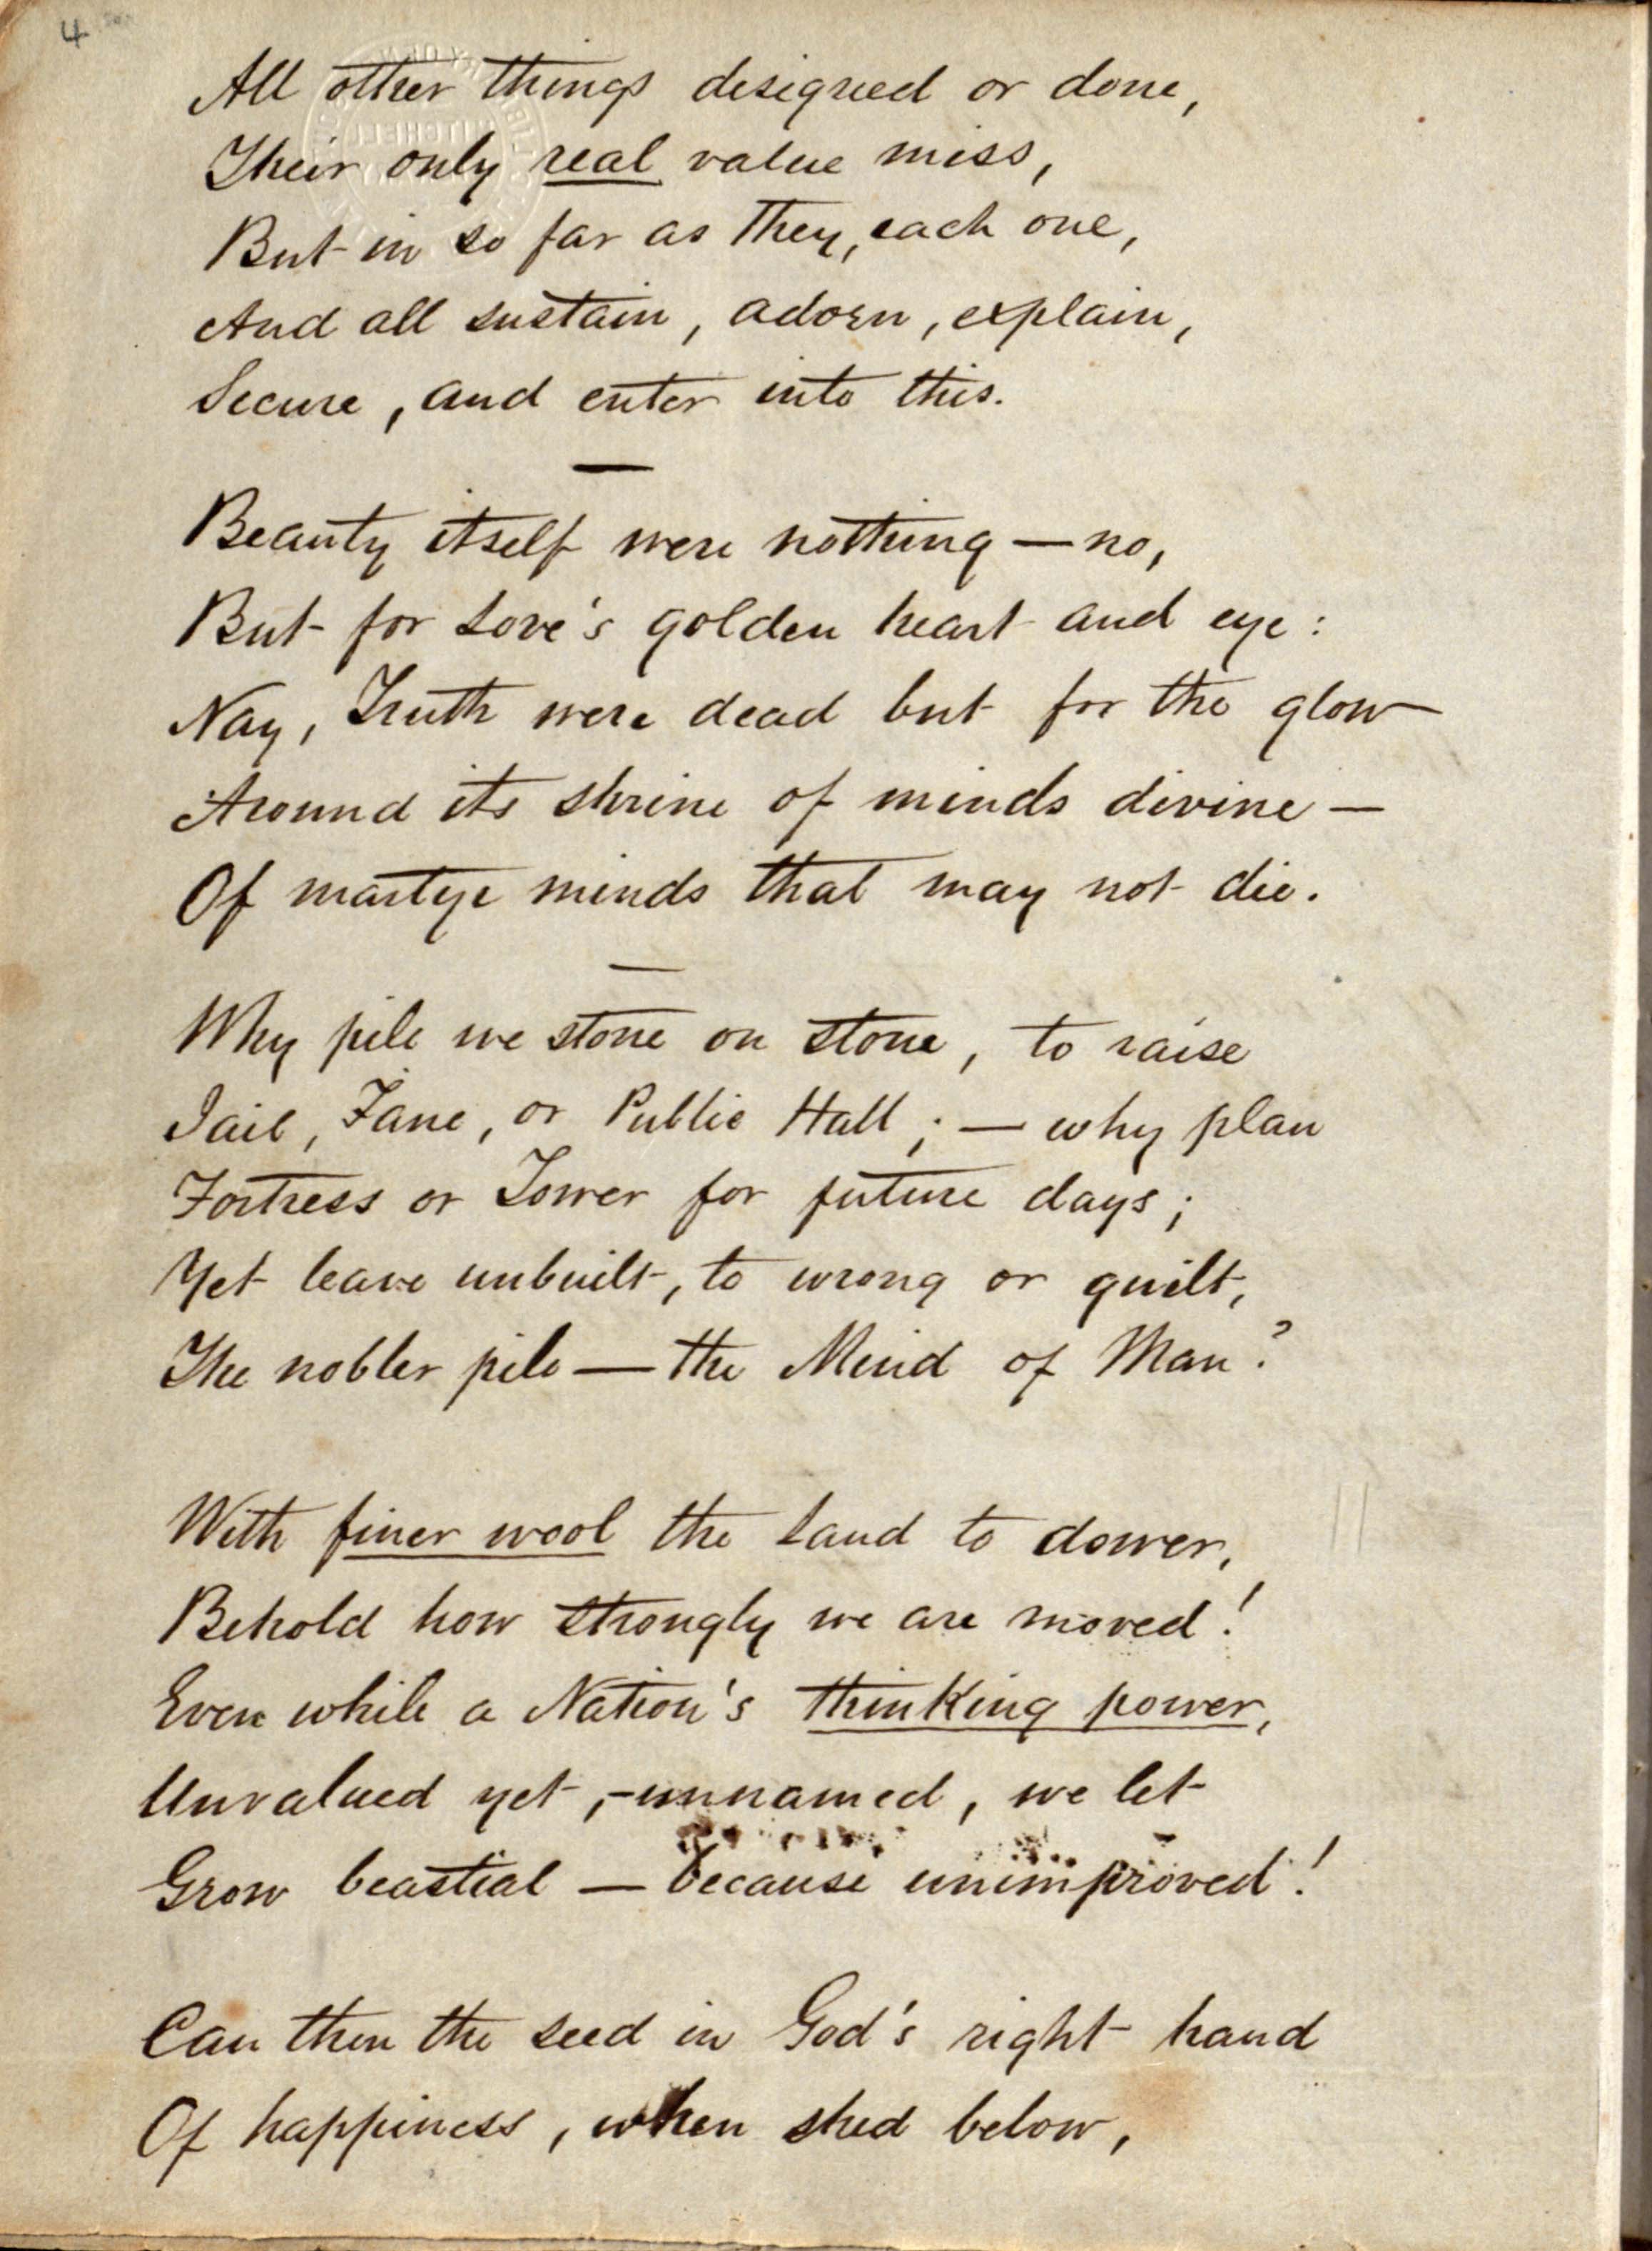 4
All other things designed or done,
Their only real value miss,
But in so far as they, each one,
And all sustain, adorn, explain,
Secure, and enter into this.
—
Beauty itself were nothing — no,
But for Love's golden heart and eye:
Nay, Truth were dead but for the glow
Around its shrine of minds divine —
Of martyr minds that may not die.
—
Why pile we stone on stone, to raise
Jail, Fane, or Public Hall; — why plan
Fortress or Tower for future days;
Yet leave unbuilt, to wrong or guilt,
The nobler pile — the Mind of Man?
With finer wool the Land to dower,
Behold how strongly we are moved!
Even while a Nation's thinking power,
Unvalued yet, – unnamed, we let
Grow beastial — because unimproved!
Can then the seed in God's right hand
Of happiness, when shed below,